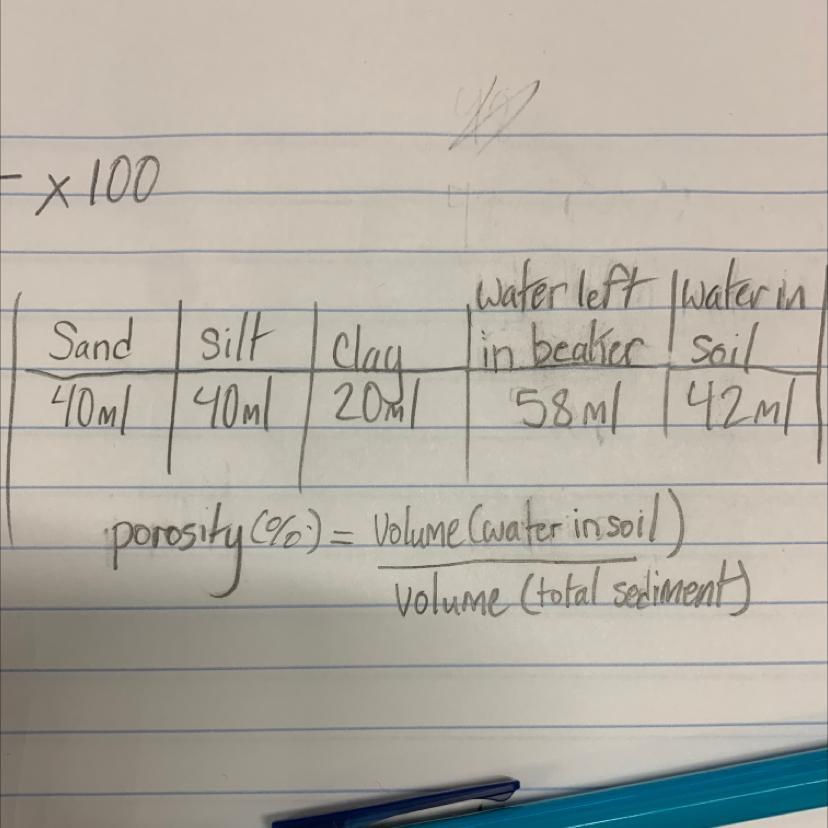 - x 100
water left water in
Sand silt Clay in beaker soil
40ml 40ml 20ml 58ml 42ml
porosity (%) = volume (water in soil)
volume (total sediment)